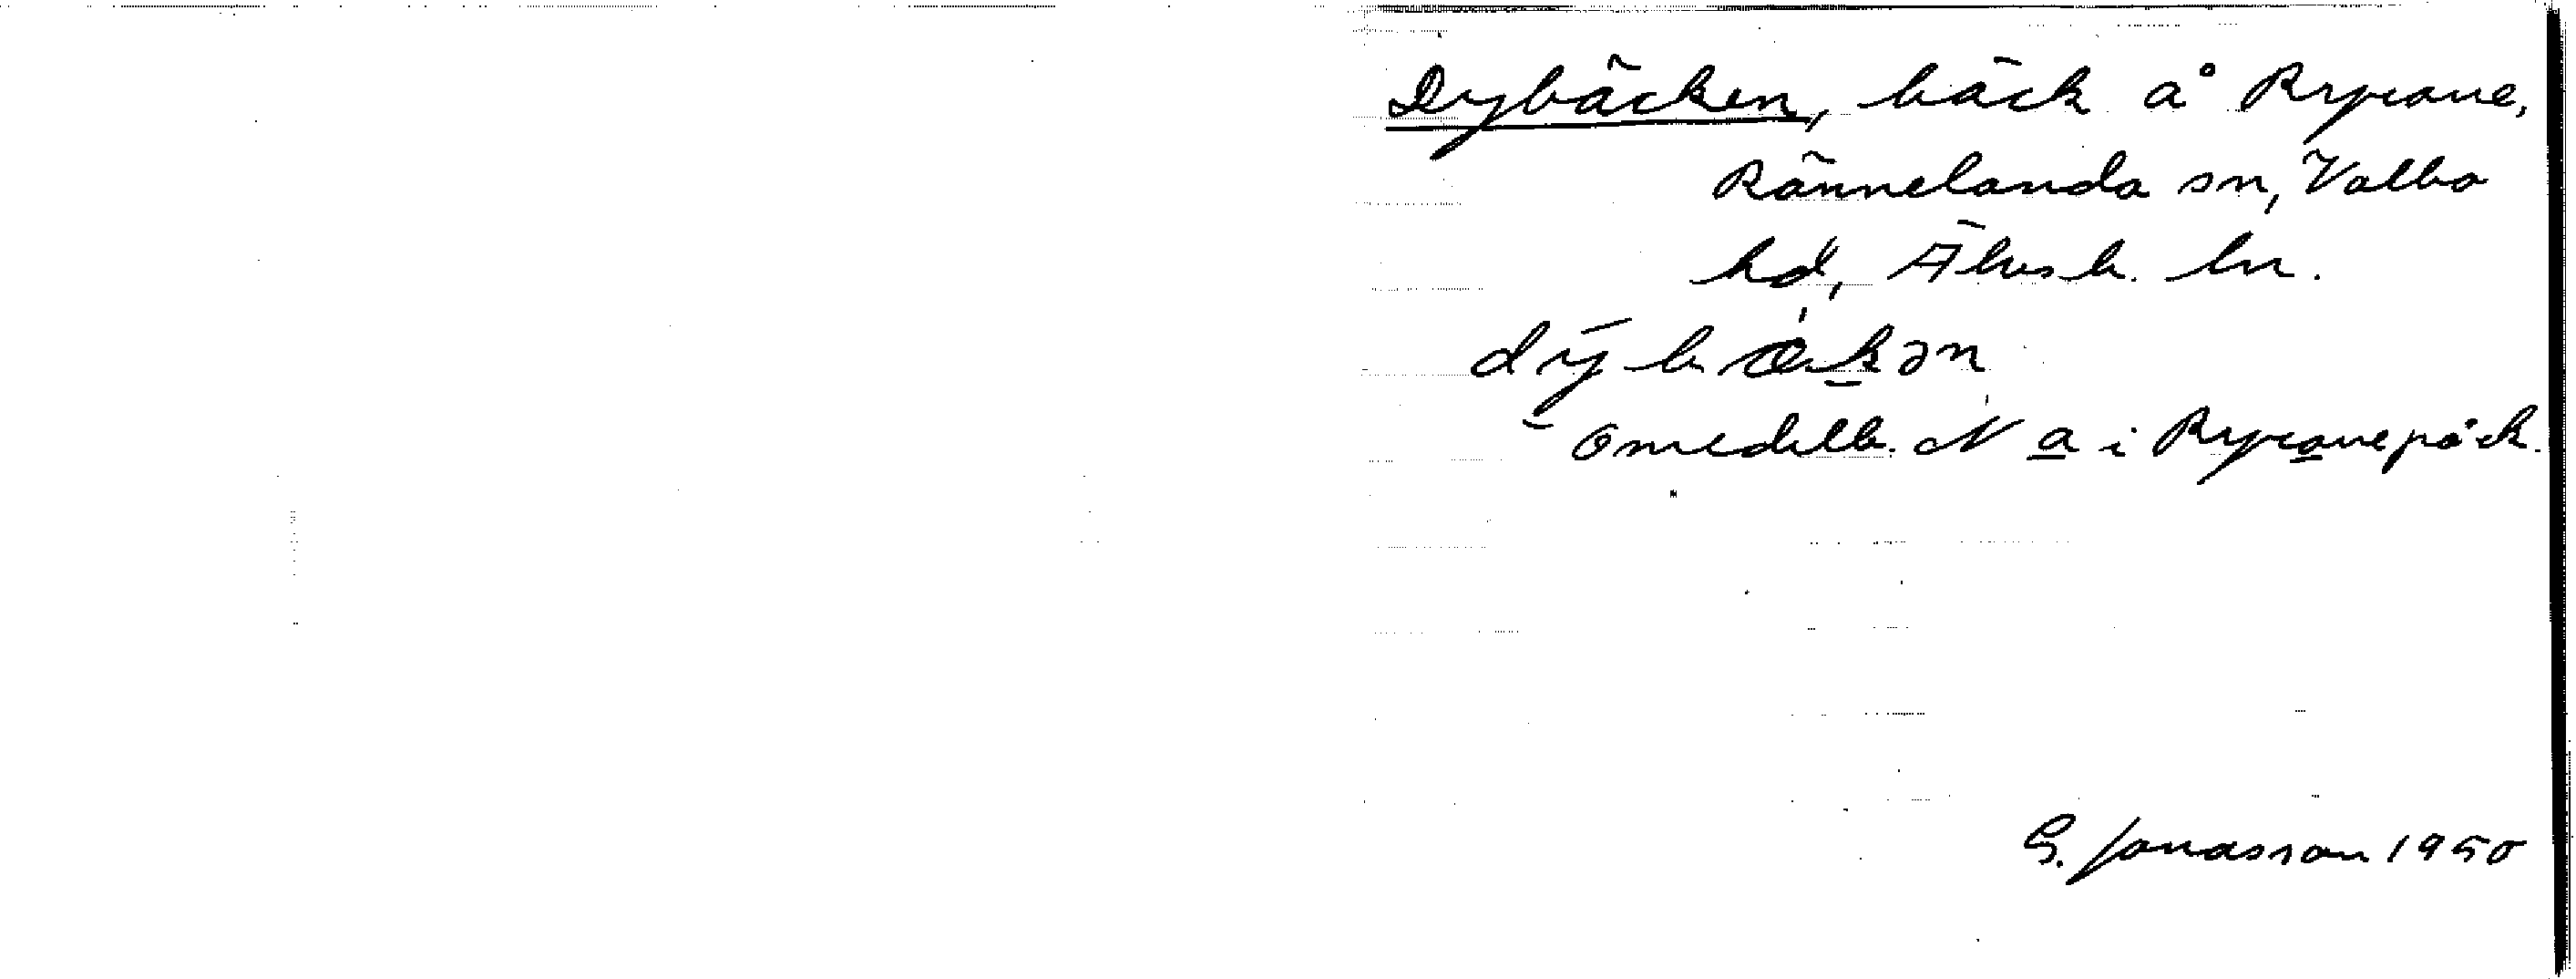 Dybäcken, bäck å Ryrane,
Rännelanda sn, Valbo
hd, Älvsb. ln.
dy̅bækən
Omedelb. N a i Ryrane på ek.
G. Jonasson 1950